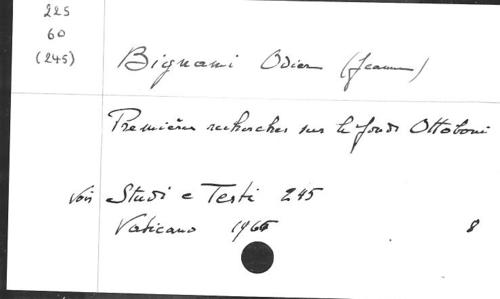 225
60
(245)
Bignami Odier (Jeanne)
Premières recherches sur le fonds Ottoboni
voir Studi e Testi 245
Vaticano 1966
8